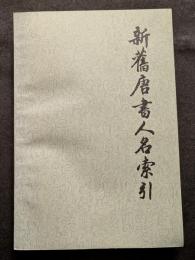 新舊唐書人名索引